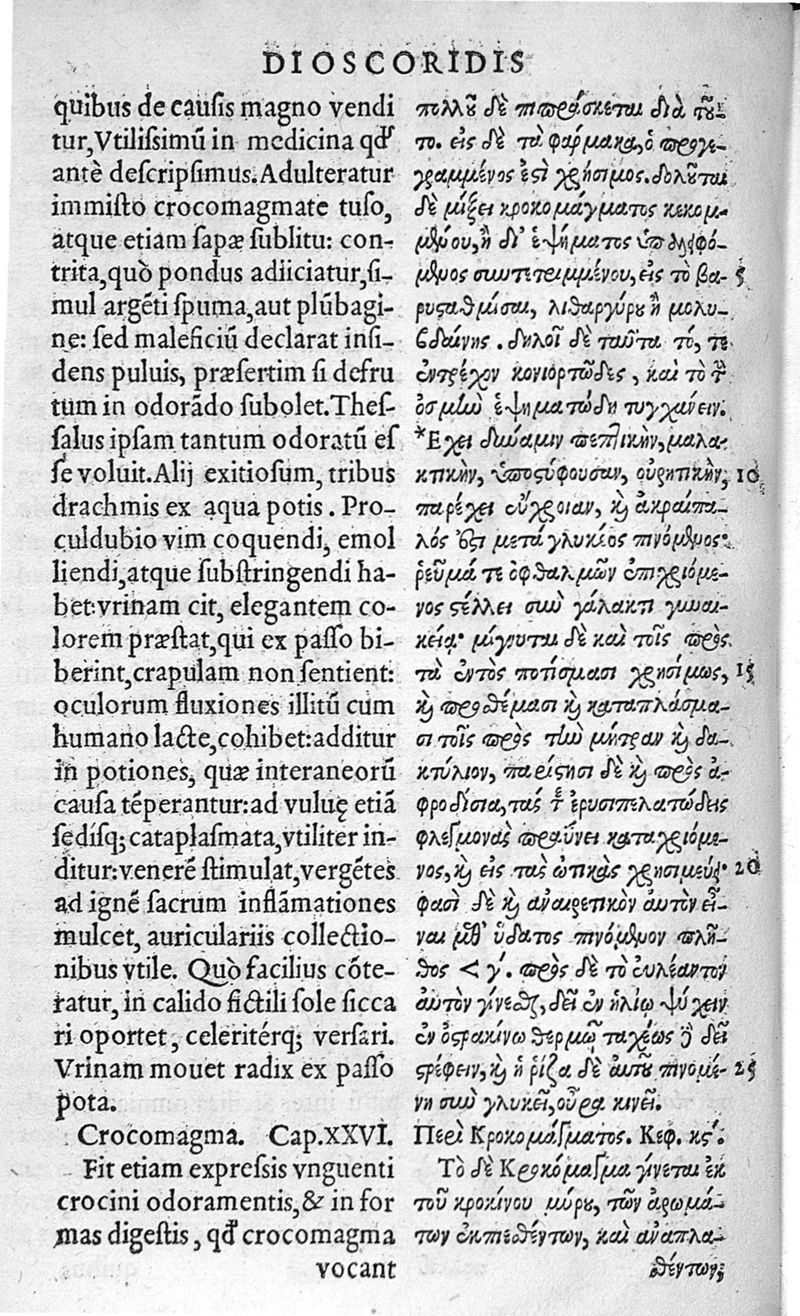 DIOSCORIDIS
quibus de causis magno vendi
tur,Vtilissimū in medicina qđ
antè descripsimus.Adulteratur
immisto crocomagmate tuso,
atque etiam sapæ sublitu: con-
trita,quò pondus adiiciatur,si-
mul argēti spuma,aut plūbagi-
ne: sed maleficiū declarat insi-
dens puluis, præsertim si defru
tum in odorādo subolet.Thes-
salus ipsam tantum odoratū es
se voluit.Alij exitiosum, tribus
drachmis ex aqua potis. Pro-
culdubio vim coquendi, emol
liendi,atque substringendi ha-
bet:vrinam cit, elegantem co-
lorem præstat,qui ex passo bi-
berint,crapulam non sentient:
oculorum fluxiones illitū cum
humano lacte,cohibet:additur
in potiones, quæ interaneorū
causa tēperantur:ad vuluę etiā
sedísq; cataplasmata,vtiliter in-
ditur:venerē stimulat,vergētes
ad ignē sacrum inflāmationes
mulcet, auriculariis collectio-
nibus vtile. Quò facilius cōte-
ratur, in calido fictili sole sicca
ri oportet, celeritérq; versari.
Vrinam mouet radix ex passo
pota.
Crocomagma. Cap.XXVI.
Fit etiam expressis vnguenti
crocini odoramentis,& in for
mas digestis, qđ crocomagma
vocant
πολλοῦ δὲ πιπράσκεται διὰ τοῦ-
το. εἰς δὲ τὰ φάρμακα,ὁ προγε-
γραμμένος ἐστὶ χρήσιμος.δολοῦται
δὲ μίξει κροκομάγματος κεκομ-
μένου,ἢ δι' ἑψήματος ὑπαλειφό-
μενος συντετειμμένου, εἰς τὸ βα- 5
ρυσταθμίσαι, λιθαργύρου ἢ μολυ-
βδαίνης. δηλοῖ δὲ ταῦτα τό, τε
ἐντρέχον κονιορτῶδες, καὶ τὸ τὴν
ὀσμὴν ἑψηματώδη τυγχάνειν.
*Ἔχει δύναμιν πεπτικὴν,μαλα-
κτικὴν, ὑποστύφουσαν, οὐρητικὴν, 10
παρέχει εὔχροιαν, καὶ ἀκραιπα-
λός ἐστι μετὰ γλυκέος πινόμενος·
ῥεῦμά τε ὀφθαλμῶν ἐπιχριόμε-
νος στέλλει σὺν γάλακτι γυναι-
κείᾳ· μίγνυται δὲ καὶ τοῖς πρὸς
τὰ ἐντὸς ποτίσμασι χρησίμως, 15
καὶ προσθέμασι καὶ καταπλάσμα-
σι τοῖς πρὸς τὴν μήτραν καὶ δα-
κτύλιον, παρίστησι δὲ καὶ πρὸς ἀ-
φροδίσια,τάς τε ἐρυσιπελατώδεις
φλεγμονὰς πραΰνει καταχριόμε-
νος,καὶ εἰς τὰς ὠτικὰς χρησιμεύει· 20
φασὶ δὲ καὶ ἀναιρετικὸν αὐτὸν εἶ-
ναι μεθ' ὕδατος πινόμενον πλῆ-
θος < γ'. πρὸς δὲ τὸ εὐλέαντον
αὐτὸν γίνεσθαι, δεῖ ἐν ἡλίῳ ψύχειν
ἐν ὀστρακίνῳ θερμῷ ταχέως δὲ δεῖ
στρέφειν,καὶ ἡ ῥίζα δὲ αὐτοῦ πινομέ- 25
νη σὺν γλυκεῖ,οὖρα κινεῖ.
Περὶ Κροκομάγματος. Κεφ. κϛ'.
Τὸ δὲ Κροκόμαγμα γίνεται ἐκ
τοῦ κροκίνου μύρου, τῶν ἀρωμά-
των ἐκπιεσθέντων, καὶ ἀναπλα-
σθέντων,